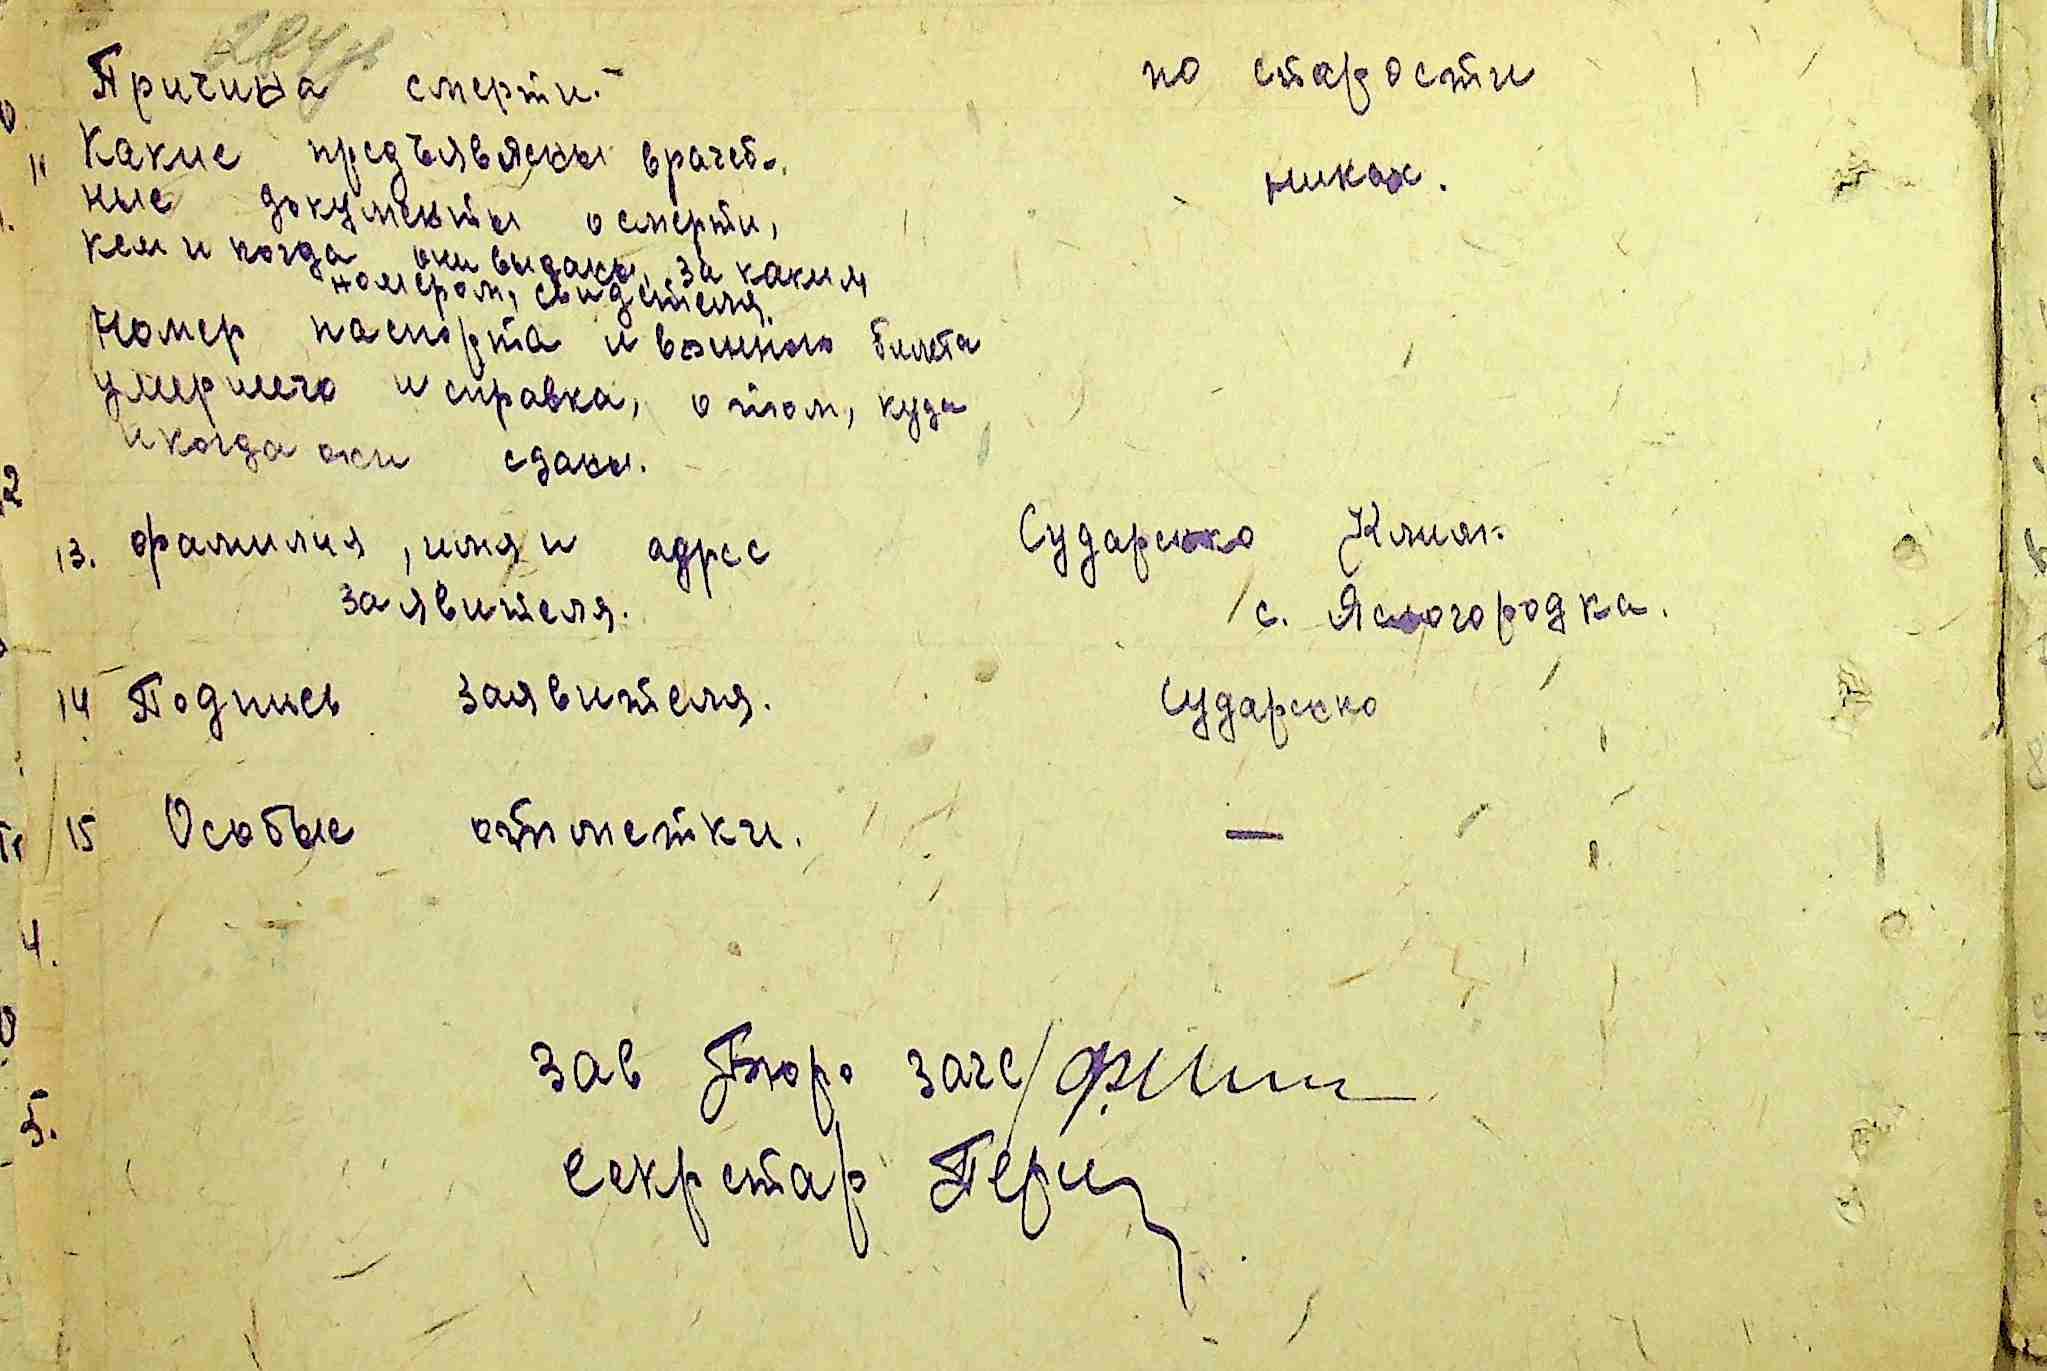 Причина смерти.- по старости
11 Какие предъявлены врачеб-
ные документы о смерти, никак.
кем и когда они выданы, за каким
номером, свидетеля.
Номер паспорта и военного билета
умершего и справка, о том, куда
и когда они сданы.
13. фамилия, имя и адрес Сударенко
заявителя. с. Ясногородка.
14 Подпись заявителя. Сударенко
15 Особые отметки. —
зав Бюро загс
секретар